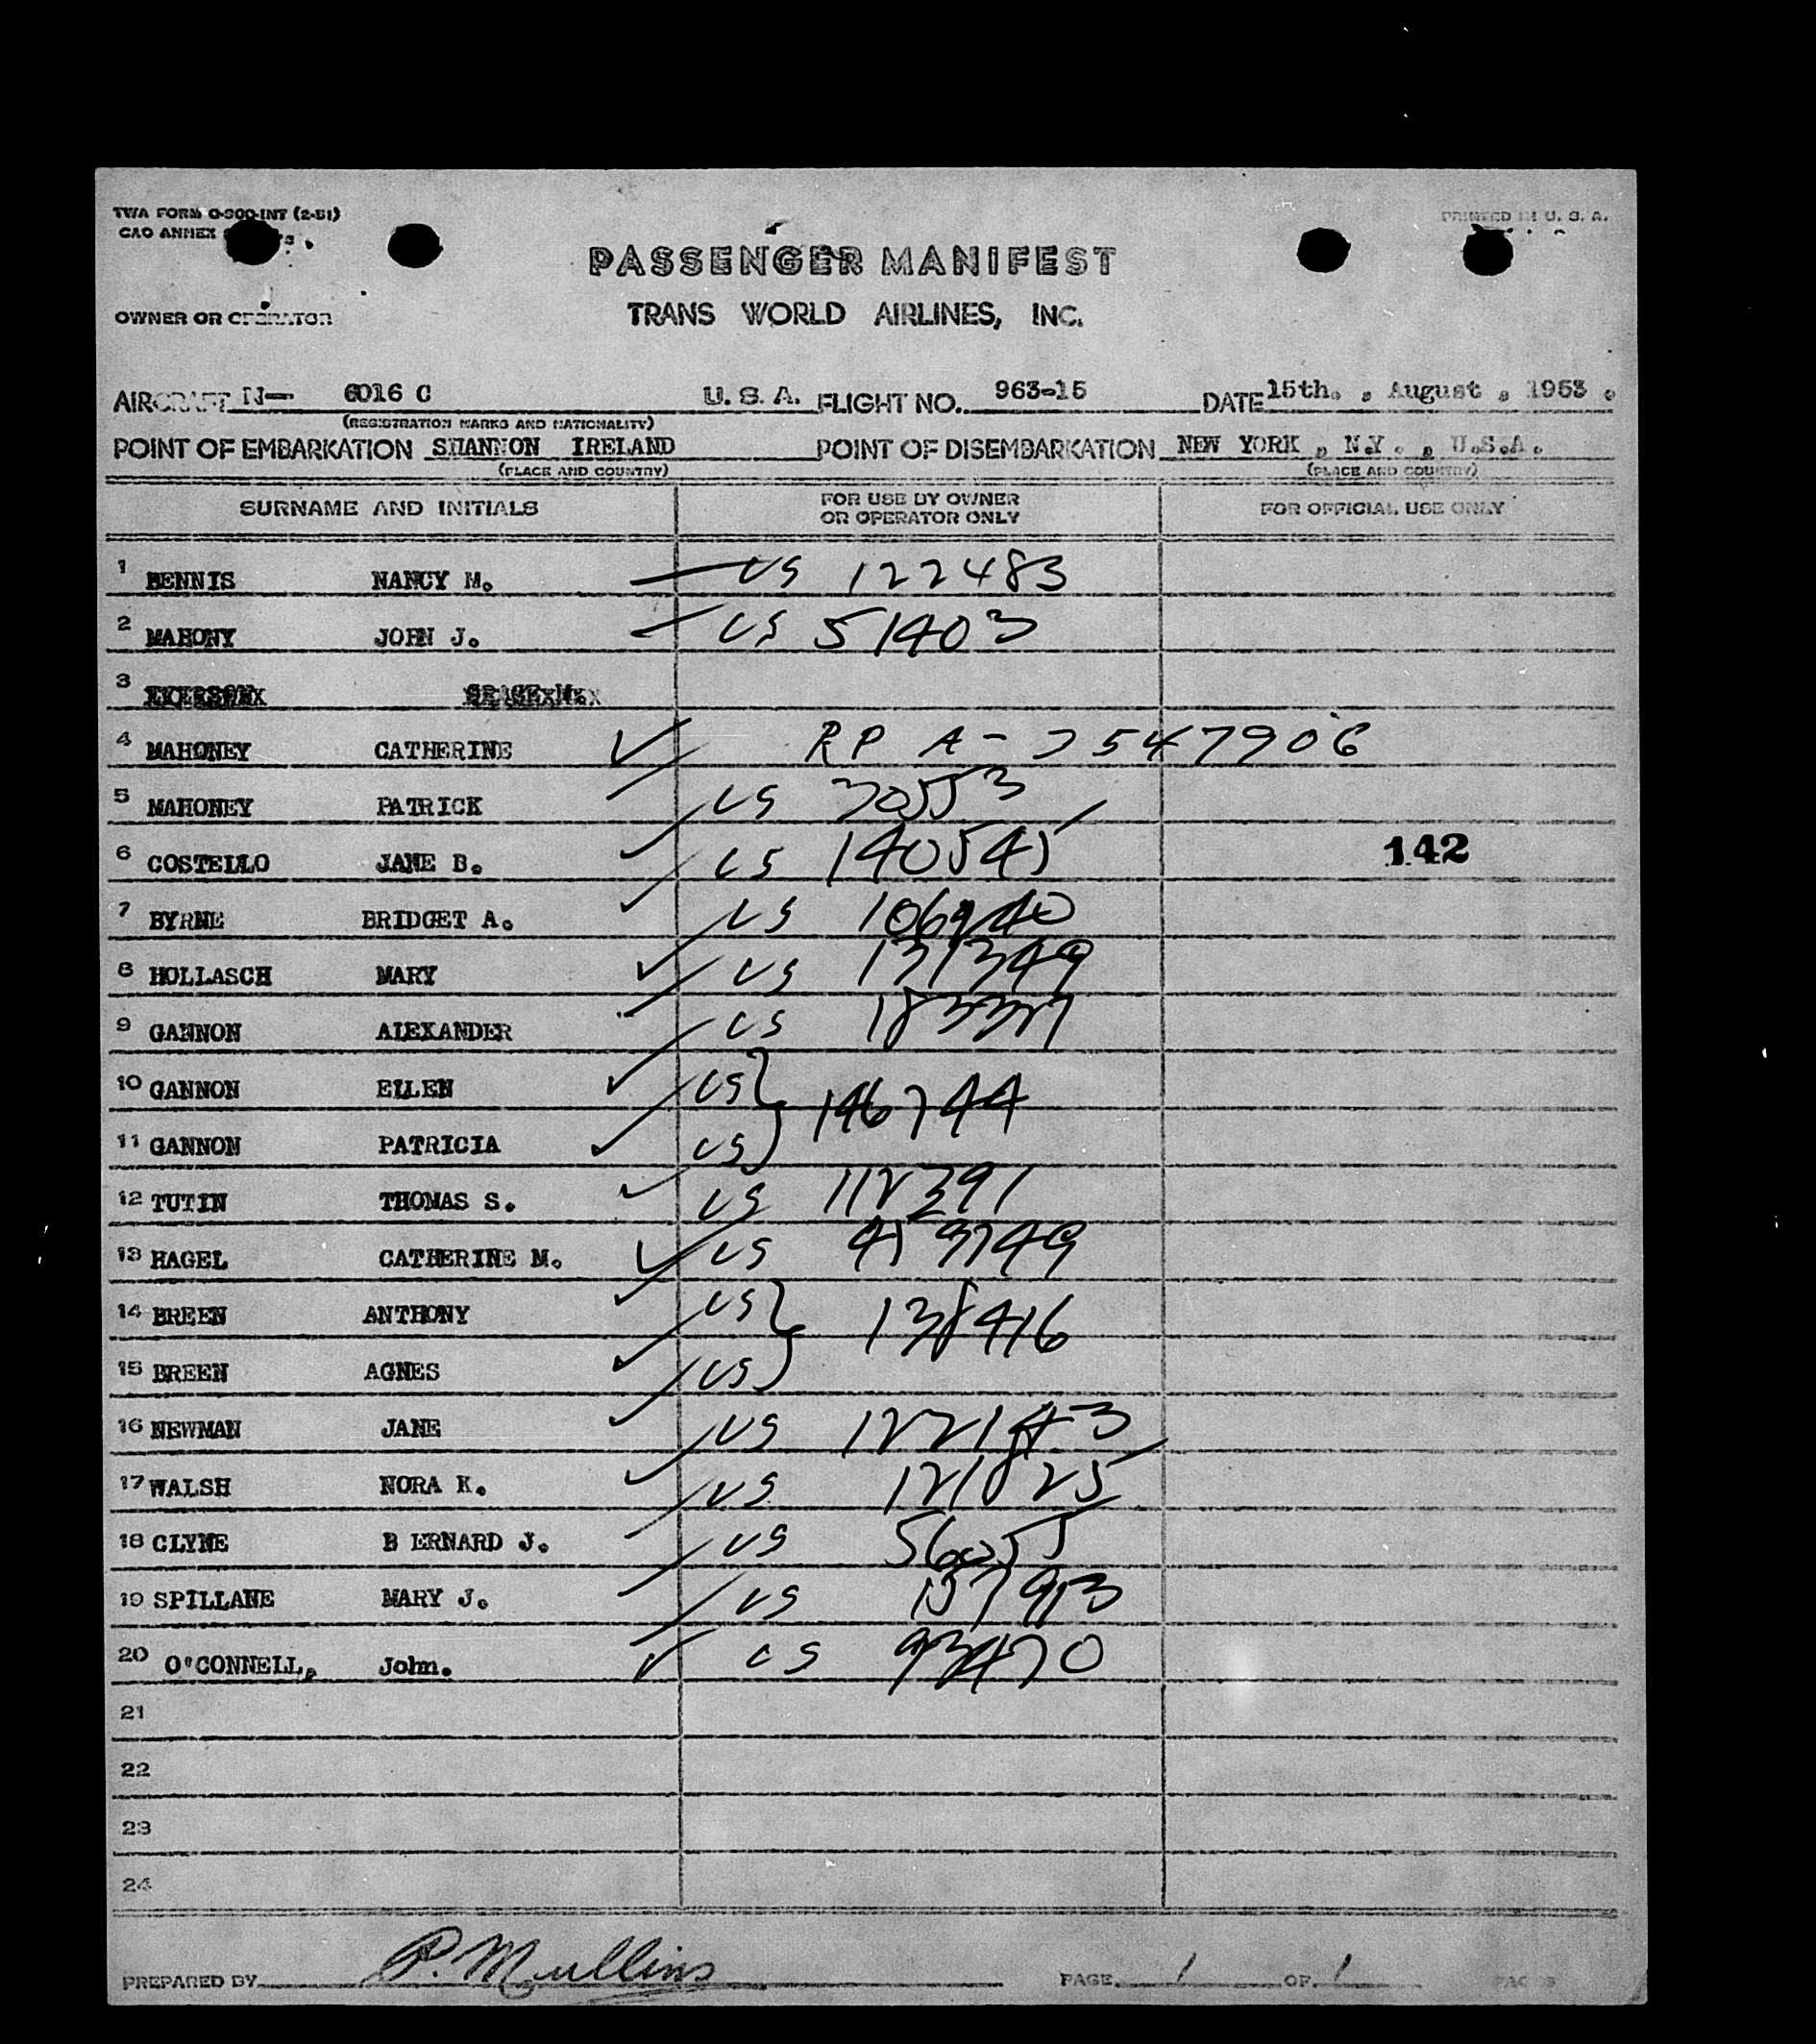 TWA FORM O-300-INT (2-51)
PRINTED IN U. S. A.
CAO ANNEX
PASSENGER MANIFEST
OWNER OR OPERATOR
TRANS WORLD AIRLINES, INC.
AIRCRAFT N- 6016 C U. S. A. FLIGHT NO. 963-15 DATE 15th. , August , 1953 .
(REGISTRATION MARKS AND NATIONALITY)
POINT OF EMBARKATION SHANNON IRELAND POINT OF DISEMBARKATION NEW YORK , N.Y. , U.S.A.
(PLACE AND COUNTRY) (PLACE AND COUNTRY)
SURNAME AND INITIALS FOR USE BY OWNER OR OPERATOR ONLY FOR OFFICIAL USE ONLY
1 BENNIS NANCY M. US 122483
2 MAHONY JOHN J. US 51403
3
4 MAHONEY CATHERINE RP A-7547906
5 MAHONEY PATRICK US 30553
6 COSTELLO JANE B. US 140545 142
7 BYRNE BRIDGET A. US 106940
8 HOLLASCH MARY US 131349
9 GANNON ALEXANDER US
10 GANNON ELLEN US 146744
11 GANNON PATRICIA US
12 TUTIN THOMAS S. US 112391
13 HAGEL CATHERINE M. US
14 BREEN ANTHONY US 138416
15 BREEN AGNES US
16 NEWMAN JANE US 122143
17 WALSH NORA K. US 121825
18 CLYNE B ERNARD J. US 56055
19 SPILLANE MARY J. US 157913
20 O'CONNELL, John. US 93470
21
22
23
24
PREPARED BY P. Mullins PAGE 1 OF 1 PAGES